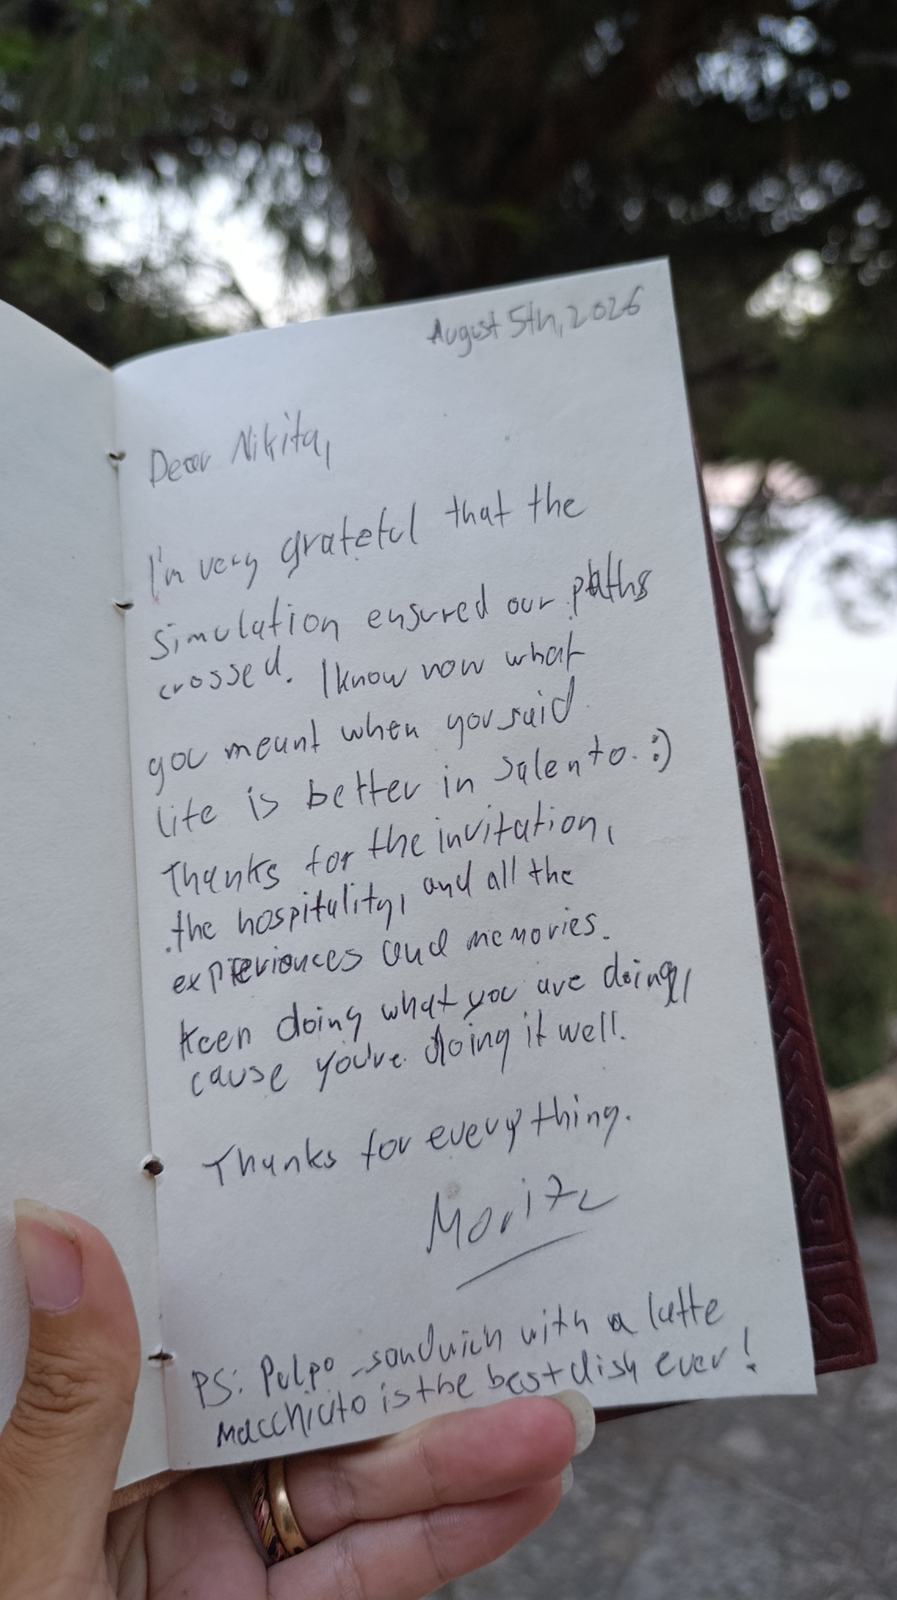 August 5th, 2026
Dear Nikita,
I'm very grateful that the
simulation ensured our paths
crossed. I know now what
you meant when you said
life is better in Salento. :)
Thanks for the invitation,
the hospitality, and all the
experiences and memories.
Keep doing what you are doing,
cause you're doing it well.
Thanks for everything.
Moritz
PS: Pulpo sandwich with a latte
macchiato is the best dish ever!